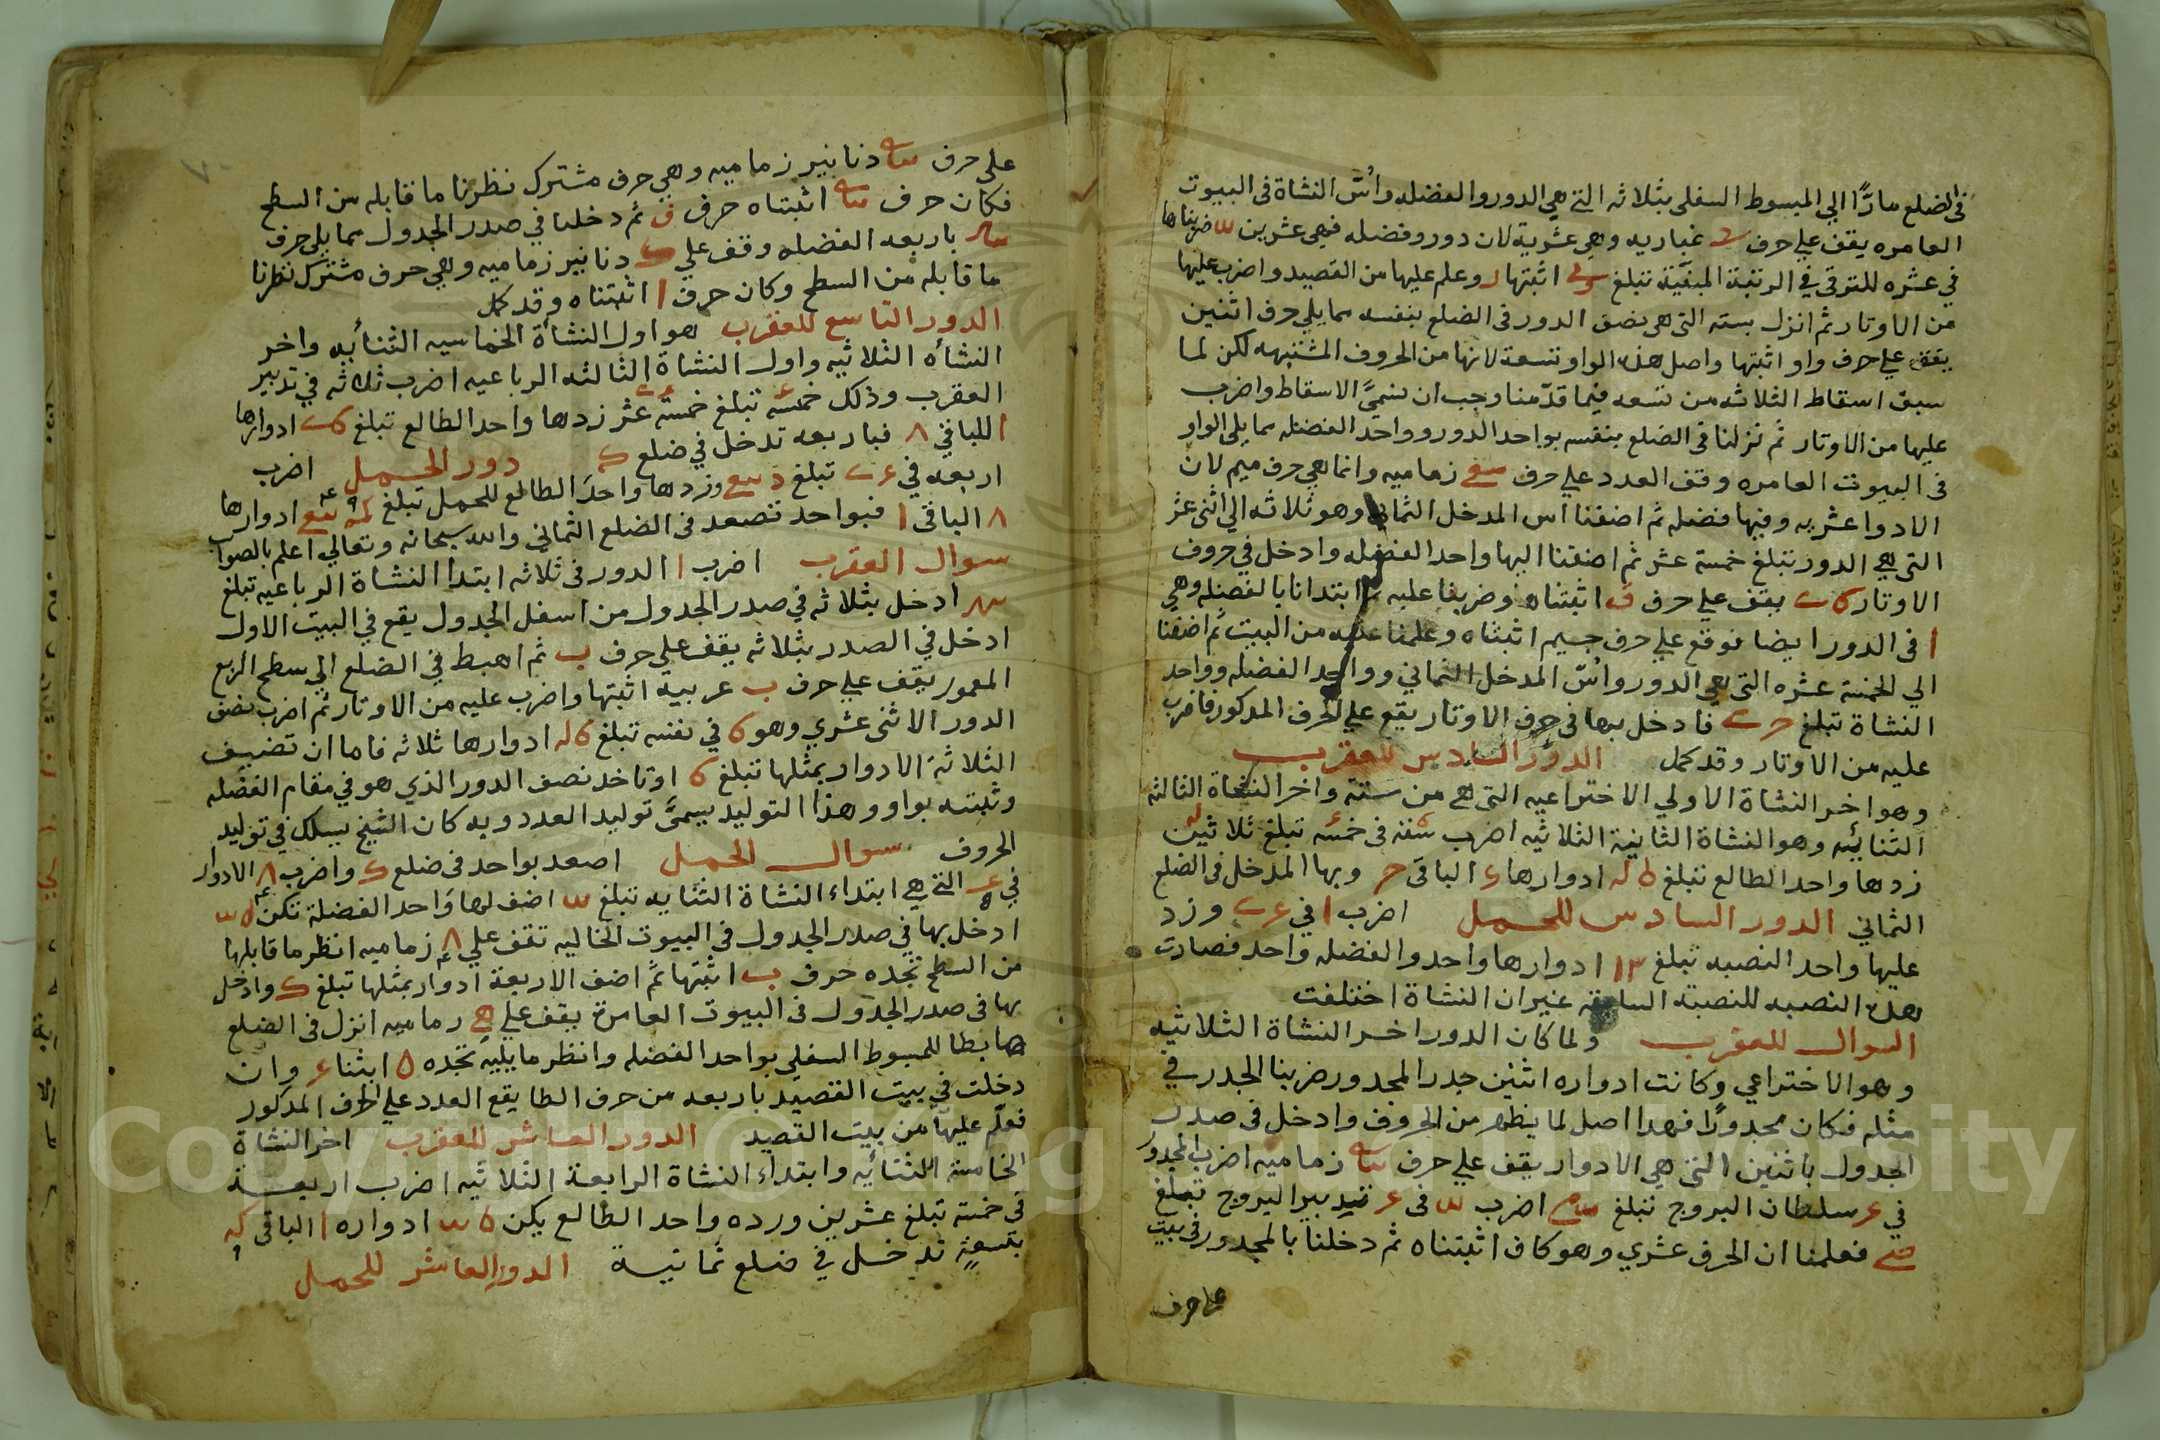 في الضلع مارًّا الي المبسوط السفلي بثلاثه التي هي الدور والفضله واُسّ النشاة في البيوت
العامره يقف علي حرف غباريه وهي عشرية لان دور وفضله فهي عشرين ضربناها
في عشره للتوقي في الرتبة المبقية تبلغ اثبتها وعلم عليها من القصيد واضرب عليها
من الاوتار ثم انزل بسته التي هي نصف الدور في الضلع بنفسه مما يلي حرف اثنين
يقف علي حرف واو اثبتها واصل هذه الواو تسعة لانها من الحروف المشتبهه لكن لما
سبق اسقاط الثلاثه من تسعه فيما قدّمنا وجب ان يسميَّ الاسقاط واضرب
عليها من الاوتار ثم نزلنا في الضلع بنفسه بواحد الدور وواحد الفضله مما يلي الواو
في البيوت العامره وقف العدد علي حرف زماميه وانما هي حرف ميم لان
الادوا عشريه وفيها فضله ثم اضفنا اس المدخل الثماني وهو ثلاثه الي اثني عشر
التي هي الدور تبلغ خمسة عشر ثم اضفنا اليها واحد الفضله وادخل في حروف
الاوتار يقف علي حرف ف اثبتناه وضربنا عليه ابتدانا بالفضله وهي
ا في الدور ايضا فوقع علي حرف جيم اثبتناه وعلمنا عليه من البيت ثم اضفنا
الي الخمسة عشره التي هي الدور واُسّ المدخل الثماني وواحد الفضله وواحد
النشاة تبلغ فادخل بها في حرف الاوتار يقع علي الحرف المذكور فاضرب
عليه من الاوتار وقد كمل الدور السادس للعقرب
وهو اخر النشاة الاولي الاختراعيه التي هي من ستة واخر النشاة الثالثه
الثنائيه وهو النشاة الثانية الثلاثيه اضرب ستة في خمسه تبلغ ثلاثين
زدها واحد الطالع تبلغ ادوارها الباقي وبها المدخل في الضلع
الثماني الدور السادس للحمل اضرب ا في وزد
عليها واحد النصبه تبلغ ١٣ ادوارها واحد والفضله واحد فصارت
هذه النصبه للنصبة السابقه غير ان النشاة اختلفت
السوال للعقرب ولما كان الدور اخر النشاة الثلاثيه
وهو الاختراعي وكانت ادواره اثنين جدر المجدور ضربنا الجدر في
مثله فكان مجدورًا فهذا اصل لما يظهر من الحروف وادخل في صدر
الجدول باثنين التي هي الادوار يقف علي حرف زماميه اضرب المجدور
في سلطان البروج تبلغ اضرب في تدبير البروج تبلغ
فعلمنا ان الحرف عشري وهو كاف اثبتناه ثم دخلنا بالمجدور في بيت
علي حرف
علي حرف دنانير زماميه وهي حرف مشترك نظرنا ما قابله من السطح
فكان حرف اثبتناه حرف ف ثم دخلنا في صدر الجدول مما يلي حرف
باربعه الفضله وقف علي دنانير زماميه وهي حرف مشترك نظرنا
ما قابله من السطح وكان حرف ا اثبتناه وقد كمل
الدور التاسع للعقرب هو اول النشاة الخماسيه الثنائيه واخر
النشأه الثلاثيه واول النشاة الثالثه الرباعيه اضرب ثلاثه في تدبير
العقرب وذلك خمسه تبلغ خمسة عشر زدها واحد الطالع تبلغ ادوارها
ا للباقي ٨ فباربعه تدخل في ضلع دور الحمل اضرب
اربعه في تبلغ وزدها واحدَ الطالع للحمل تبلغ ادوارها
٨ الباقي ا فبواحد تصعد في الضلع الثماني والله سبحانه وتعالي اعلم بالصواب
سوال العقرب اضرب ا الدور في ثلاثه ابتدا النشاة الرباعيه تبلغ
ادخل بثلاثه في صدر الجدول من اسفل الجدول يقع في البيت الاول
ادخل في الصدر بثلاثه يقف علي حرف ب ثم اهبط في الضلع الي سطح الربع
المعمور يقف علي حرف ب عربيه اثبتها واضرب عليه من الاوتار ثم اضرب نصف
الدور الاثني عشري وهو في نفسه تبلغ ادوارها ثلاثه فاما ان تضيف
الثلاثة الادوار بمثلها تبلغ او تاخد نصف الدور الذي هو في مقام الفضله
وثبته بواو وهذا التوليد يسميَّ توليد العدد وبه كان الشيخ يسلك في توليد
الحروف سوال الحمل اصعد بواحد في ضلع واضرب ٨ الادوار
في التي هي ابتداء النشاة الثنايه تبلغ اضف لها واحد الفضلة تكن
ادخل بها في صدر الجدول في البيوت الخاليه تقف علي ٨ زماميه انظر ما قابلها
من السطح تجده حرف ب اثبتها ثم اضف الاربعة ادوار بمثلها تبلغ وادخل
بها في صدر الجدول في البيوت العامرة يقف علي زماميه انزل في الضلع
هابطا للمبسوط السفلي بواحد الفضله وانظر ما يليه تجده اثبتنا وان
دخلت في بيت القصيد باربعه من حرف الطا يقع العدد علي الحرف المذكور
فعلّم عليها من بيت القصيد الدور العاشر للعقرب اخر النشاة
الخامسة الثنائيه وابتداء النشاة الرابعة الثلاثيه اضرب اربعة
في خمسة تبلغ عشرين ورده واحد الطالع يكن ادواره ا الباقي
بتسعةٍ تدخل في ضلع ثمانية الدور العاشر للحمل
Copyright © King University